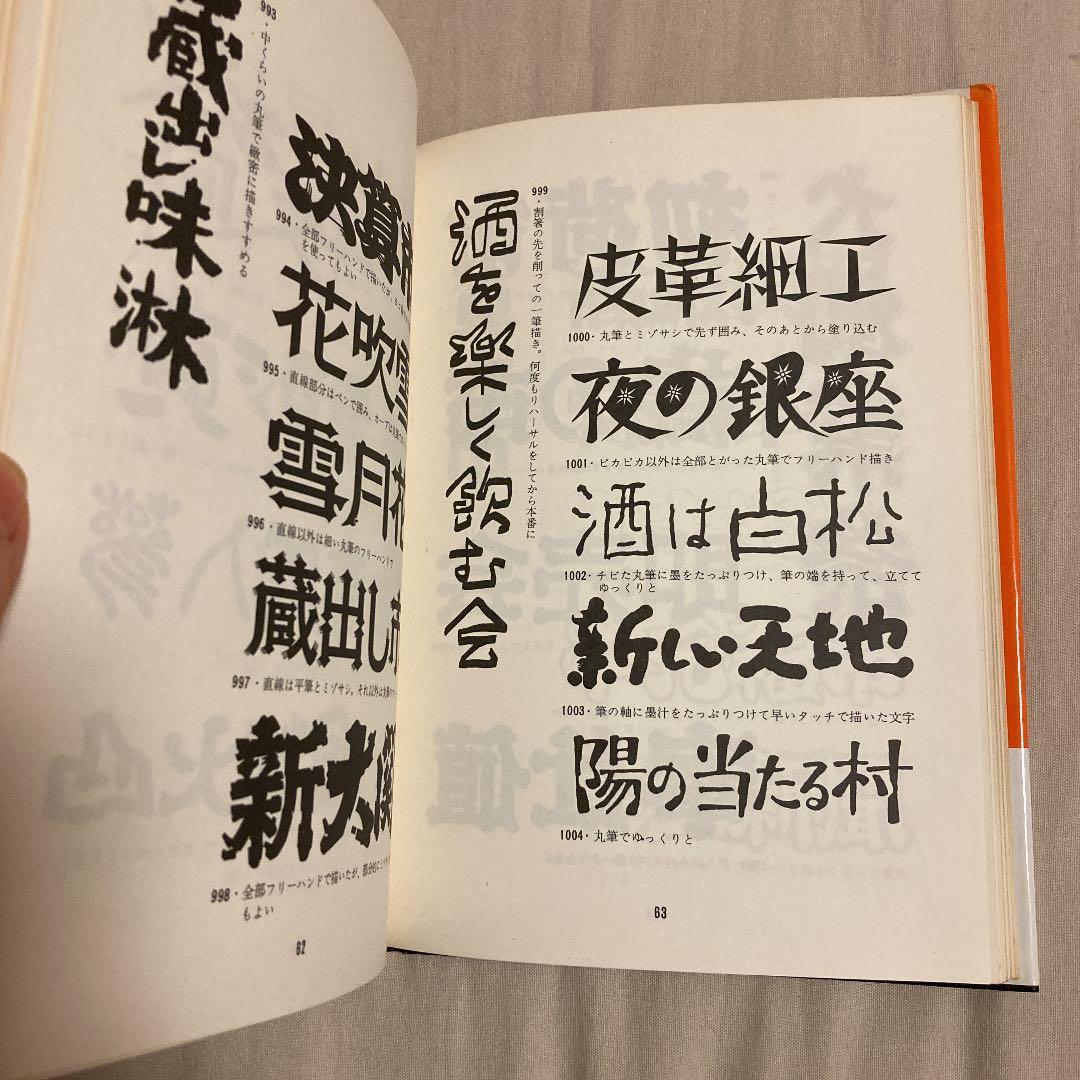 993・中くらいの丸筆で緻密に描きすすめる
蔵出し味淋
決算
994・全部フリーハンドで描いたが、
を使ってもよい
花吹雪
995・直線部分はペンで囲み、カーブは
雪月花
996・直線以外は細い丸筆のフリーハンドで
蔵出し
997・直線は平筆とミゾサシ。それ以外は
新太閤
998・全部フリーハンドで描いたが、部分的に
もよい
62
999・割箸の先を削っての一筆描き。何度もリハーサルをしてから本番に
酒を楽しく飲む会
皮革細工
1000・丸筆とミゾサシで先ず囲み、そのあとから塗り込む
夜の銀座
1001・ピカピカ以外は全部とがった丸筆でフリーハンド描き
酒は白松
1002・チビた丸筆に墨をたっぷりつけ、筆の端を持って、立てて
ゆっくりと
新しい天地
1003・筆の軸に墨汁をたっぷりつけて早いタッチで描いた文字
陽の当たる村
1004・丸筆でゆっくりと
63